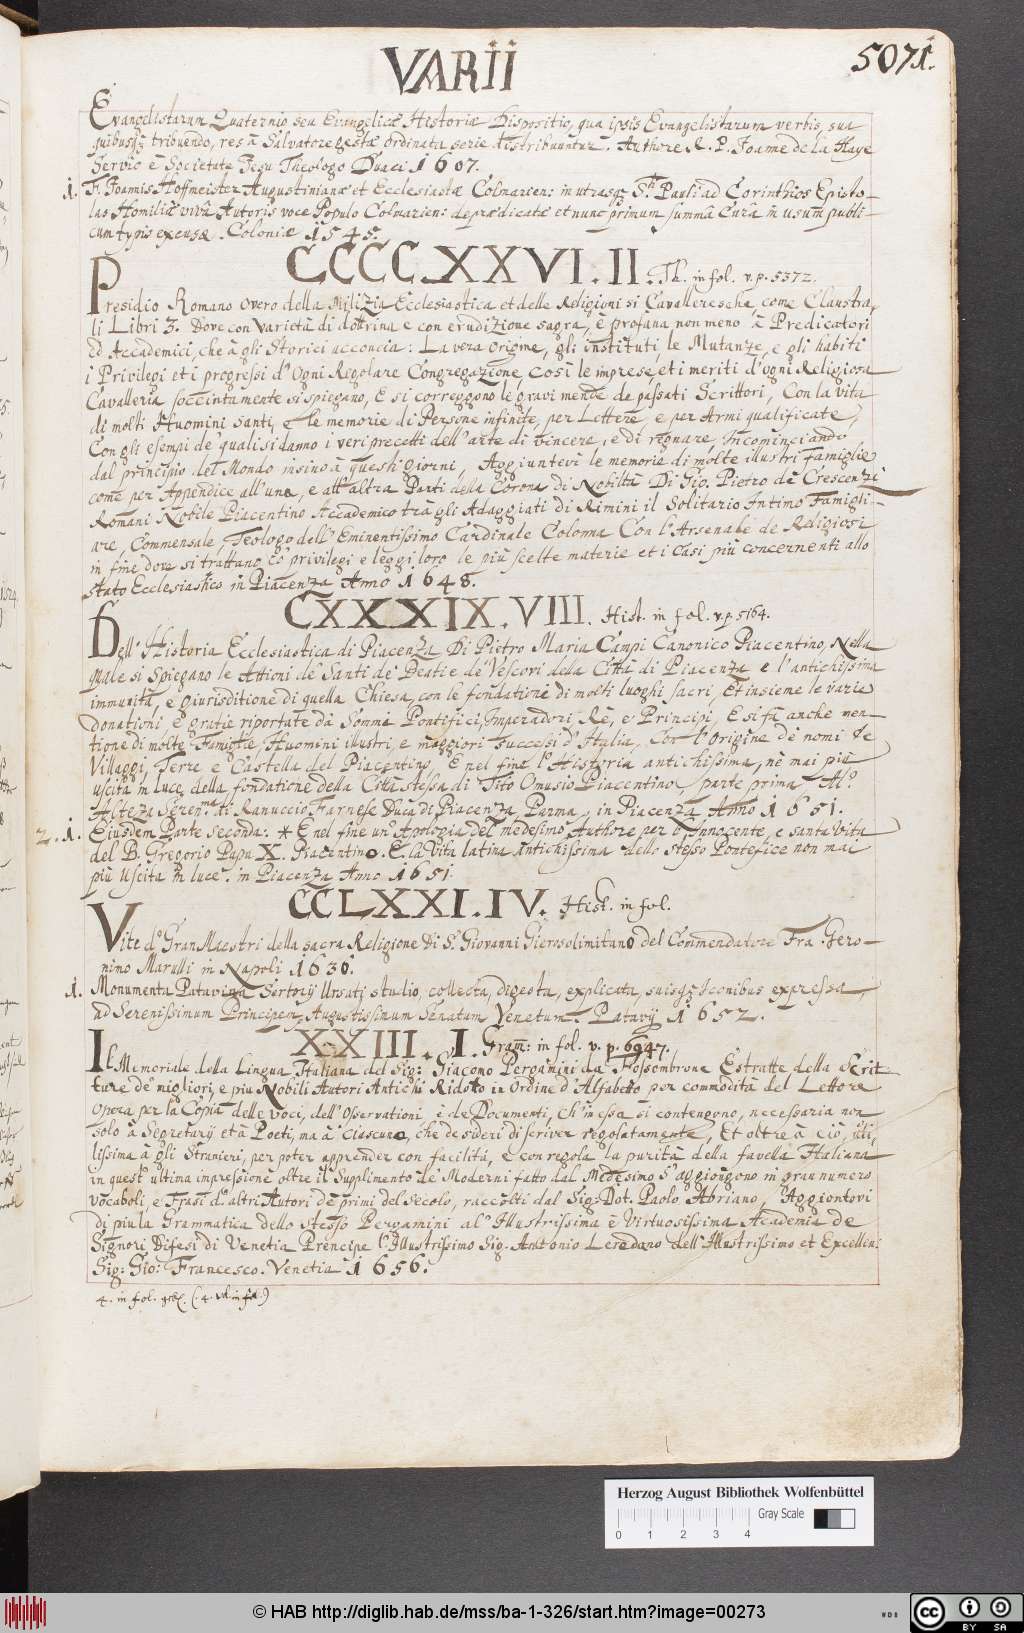 VARII
5071.
Evangelistarum Quaternio seu Evangelicæ Historiæ Dispositio, qua ipsis Evangelistarum verbis, sua
quibusq; tribuendo, res à Salvatore gestæ ordinata serie distribuuntur. Authore R. P. Joanne de la Haye
Servio è Societate Jesu Theologo Duaci 1607.
1. F. Joannis Hoffmeister Augustinianæ et Ecclesiastæ Colmarien: in utrasq; S. Pauli ad Corinthios Episto-
las Homiliæ vivâ Autoris voce Populo Colmarien: deprædicatæ et nunc primum summâ Curâ in usum publi-
cum typis excusæ. Coloniæ 1545.
CCCCXXVI. II. Th. in fol. v. p. 5372.
Presidio Romano overo della Milizia Ecclesiastica et delle Religioni si Cavalleresche, come Claustra-
li Libri 3. Dove con varietà di dottrina e con erudizione sagra, è profana non meno à Predicatori
ed Accademici, che à gli Storici acconcia: La vera Origine, gli instituti, le Mutanze, e gli habiti
i Privilegi et i progressi d'Ogni Regolare Congregazione, Così le imprese, et i meriti d'ogni Religiosa
Cavalleria soccintamente si spiegano, E si correggono le gravi mende de passati Scrittori, Con la vita
di molti Huomini santi, e le memorie di Persone infinite, per Lettere, e per Armi qualificate,
Con gli esempi de' quali si danno i veri precetti dell'arte di vincere, e di regnare, Incominciando
dal principio del Mondo insino à questi giorni, Aggiuntevi le memorie di molte illustri Famiglie
come per Appendice all'una, e all'altra Parti della Corona di Nobiltà Di Gio. Pietro de Crescenzi
Romani Nobile Piacentino Accademico trà gli Adaggiati di Rimini il Solitario Intimo Famigli-
are, Commensale, Teologo dell'Eminentissimo Cardinale Colonna Con l'Arsenale de Religiosi
in fine dove si trattano co' privilegi e leggi loro le più scelte materie et i Casi più concernenti allo
Stato Ecclesiastico in Piacenza Anno 1648.
CXXXIX. VIII. Hist. in fol. v. p. 5164.
Dell'Historia Ecclesiastica di Piacenza Di Pietro Maria Campi Canonico Piacentino, Nella
quale si Spiegano le Attioni de Santi de' Beati e de' Vescovi della Città di Piacenza e l'antichissima
immunità, e giurisditione di quella Chiesa, con le fondationi di molti luoghi sacri, Et insieme le varie
donationi, e gratie riportate dà Sommi Pontefici, Imperadori, Rè, e' Principi, E si fà anche men-
tione di molte Famiglie, Huomini illustri, e maggiori successi d'Italia, Con l'Origine de nomi de
Villaggi, Terre e Castella del Piacentino, E nel fine l'Historia antichissima, nè mai più
uscita in luce, della fondatione della Città stessa di Tito Omusio Piacentino parte prima All'
Altezza Seren.ma di Ranuccio Farnese Duca di Piacenza, Parma, in Piacenza Anno 1651.
2. 1. Eiusdem Parte Seconda: * E nel fine un'Apologia del medesimo Authore per l'Innocente, e santa Vita
del B. Gregorio Papa X. Piacentino. E la Vita latina antichissima dello stesso Pontefice non mai
più Uscita in luce. in Piacenza Anno 1651.
CCLXXI. IV. Hist. in fol.
Vite de' Gran Maestri della sacra Religione di S. Giovanni Gierosolimitano del Commendatore Fra. Gero-
nimo Marulli in Napoli 1636.
1. Monumenta Patavina Sertorij Ursati studio, collecta, digesta, explicata, suisq; Iconibus expressa,
ad Serenissimum Principem, Augustissimum Senatum Venetum. Patavij 1652.
XXIII. I. Gram: in fol. v. p. 6947.
Il Memoriale della Lingua Italiana del Sig: Giacomo Pergamini da Fossombrone Estratte della Scrit-
ture de' migliori, e piu Nobili Autori Antichi Ridotto in Ordine d'Alfabetto per commodità del Lettore
Opera per la Copia delle Voci, dell'Osservationi e de Documenti, ch'in essa si contengono, necessaria non
solo à Segretarij et à Poeti, ma à ciascuno, che desideri di scriver regolatamente, Et oltre à ciò, uti-
lissima à gli Stranieri, per poter apprender con facilitá, e con regola la purità della favella Italiana
in quest'ultima impressione oltre il Supplimento de' Moderni fatto dal Medesimo s' aggiongono in gran numero
vocaboli e Frasi d'altri Autori de' primi del Secolo, raccolti dal Sig: Dot. Paolo Abriano, Aggiontovi
di piu la Grammatica dello Stesso Pergamini al' Illustrissima e Virtuosissima Academia de
Signori Difesi di Venetia Prencipe l'Illustrissimo Sig. Antonio Loredano dell'Illustrissimo et Excellen:
Sig: Gio: Francesco. Venetia 1656.
4. in fol.
Herzog August Bibliothek Wolfenbüttel
Gray Scale
0 1 2 3 4
© HAB http://diglib.hab.de/mss/ba-1-326/start.htm?image=00273
cc BY SA